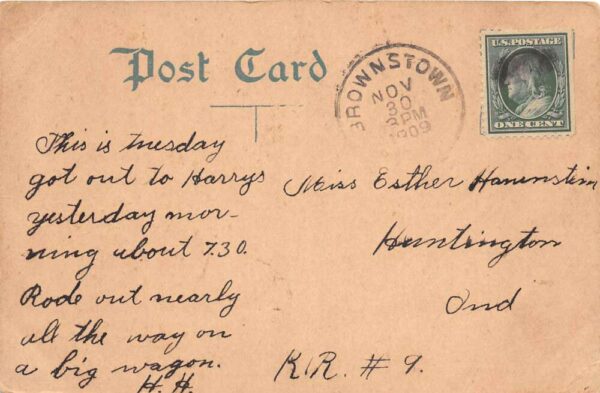 Post Card
BROWNSTOWN
NOV
30
PM
1909
U.S. POSTAGE
ONE CENT
This is tuesday
got out to Harrys
yesterday mor-
ning about 7.30.
Rode out nearly
all the way on
a big wagon.
H. H.
Miss Esther
Huntington
Ind
R. # 9.